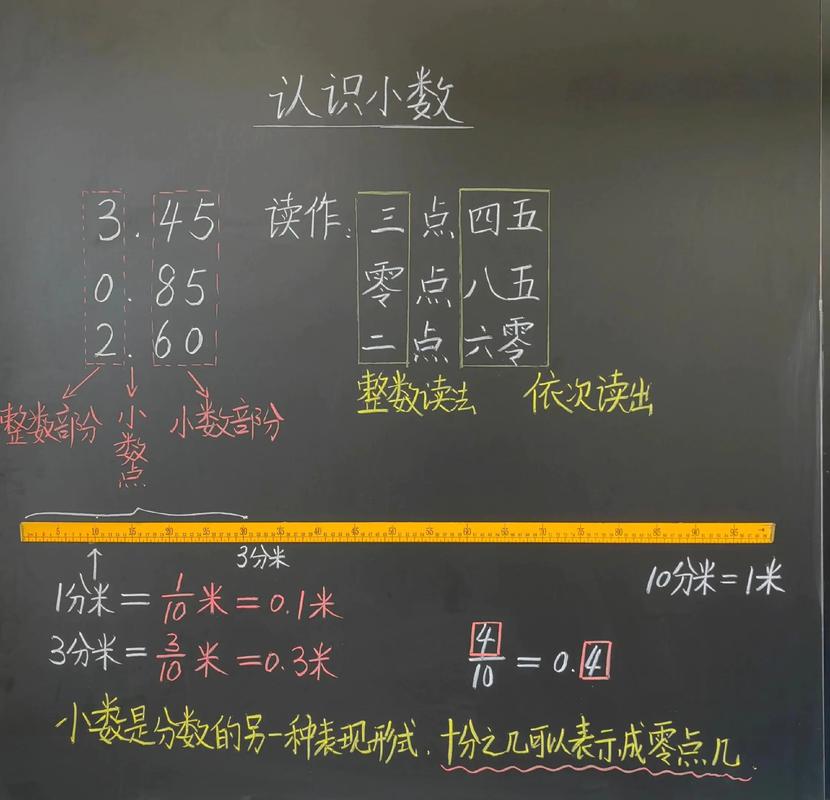 认识小数
3.45 读作:三点四五
0.85 零点八五
2.60 二点六零
整数部分 小数点 小数部分 整数读法 依次读出
5 10 15 20 25 30 35 40 45 50 55 60 65 70 75 80 85 90 95
3分米 10分米=1米
1分米=1/10米=0.1米
3分米=3/10米=0.3米 4/10=0.4
小数是分数的另一种表现形式.十分之几可以表示成零点几.